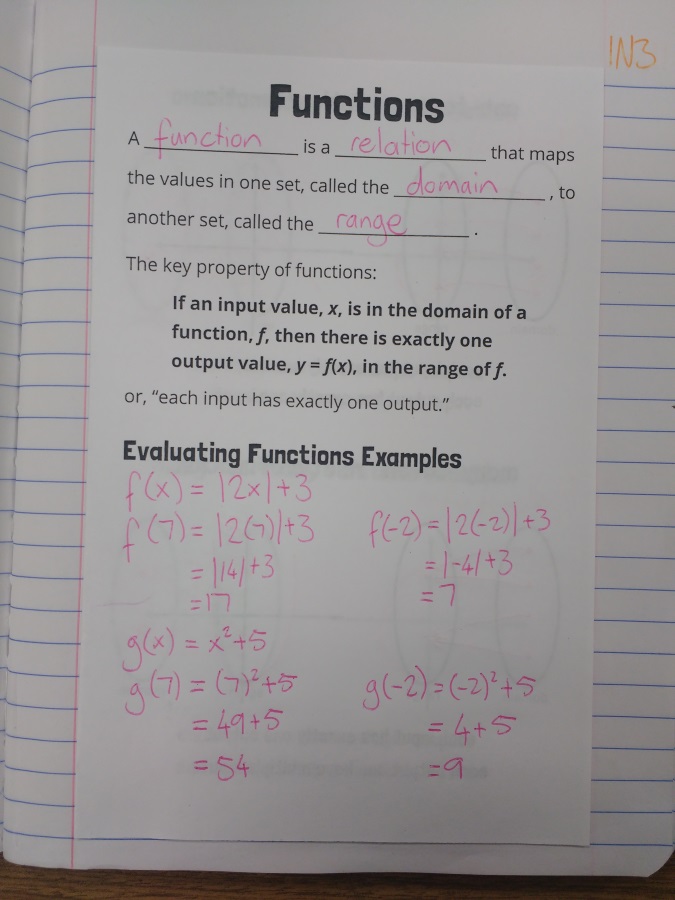 1N3
Functions
A function is a relation that maps
the values in one set, called the domain, to
another set, called the range.
The key property of functions:
If an input value, x, is in the domain of a
function, f, then there is exactly one
output value, y = f(x), in the range of f.
or, “each input has exactly one output.”
Evaluating Functions Examples
f(x) = |2x|+3
f(7) = |2(7)|+3
= |14|+3
=17
f(-2) = |2(-2)|+3
= |-4|+3
= 7
g(x) = x²+5
g(7) = (7)²+5
= 49+5
= 54
g(-2) = (-2)²+5
= 4+5
=9